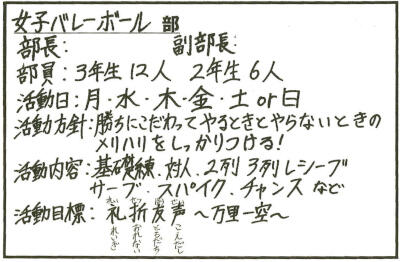 女子バレーボール 部
部長: 副部長:
部員: 3年生12人 2年生6人
活動日: 月・水・木・金・土or日
活動方針: 勝ちにこだわってやるときとやらないときの
メリハリをしっかりつける!
活動内容: 基礎練、対人、2列 3列レシーブ
サーブ、スパイク、チャンス など
活動目標: 礼 折 友 声 ～万里一空～
れいぎ おれない ともだち こんだし